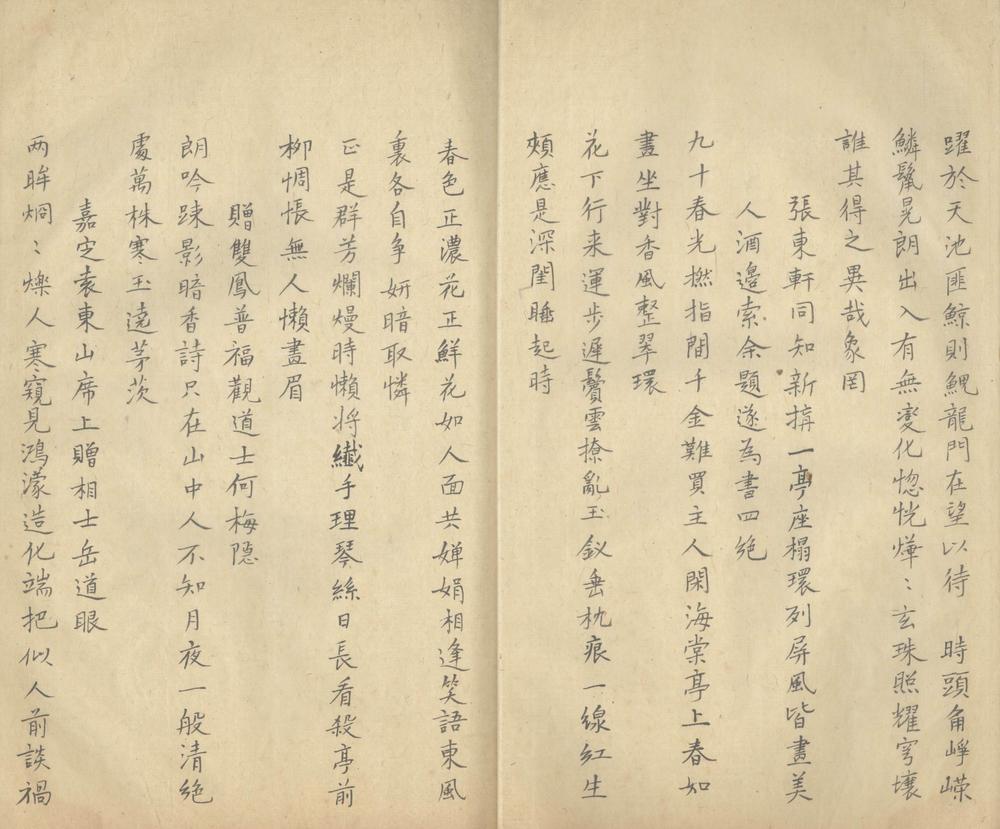 躍於天池匪鯨則鯤龍門在望以待　時頭角崢嶸
鱗鬣晃朗出入有無變化惚恍燁〻玄珠照耀穹壤
誰其得之異哉象罔
張東軒同知新搆一亭座榻環列屏風皆畫美
人酒邊索余題遂為書四絶
九十春光撚指間千金難買主人閑海棠亭上春如
晝坐對香風整翠環
花下行来運步遲鬢雲撩亂玉釵垂枕痕一線紅生
頰應是深閨睡起時
春色正濃花正鮮花如人面共嬋娟相逢笑語東風
裏各自争妍暗取憐
正是群芳爛熳時懶将纖手理琴絲日長看殺亭前
柳惆悵無人懶畫眉
贈雙鳳普福觀道士何梅隱
朗吟踈影暗香詩只在山中人不知月夜一般清絶
處萬株寒玉遶茅茨
嘉定袁東山席上贈相士岳道眼
两眸烱〻爍人寒窺見鴻濛造化端把似人前談禍